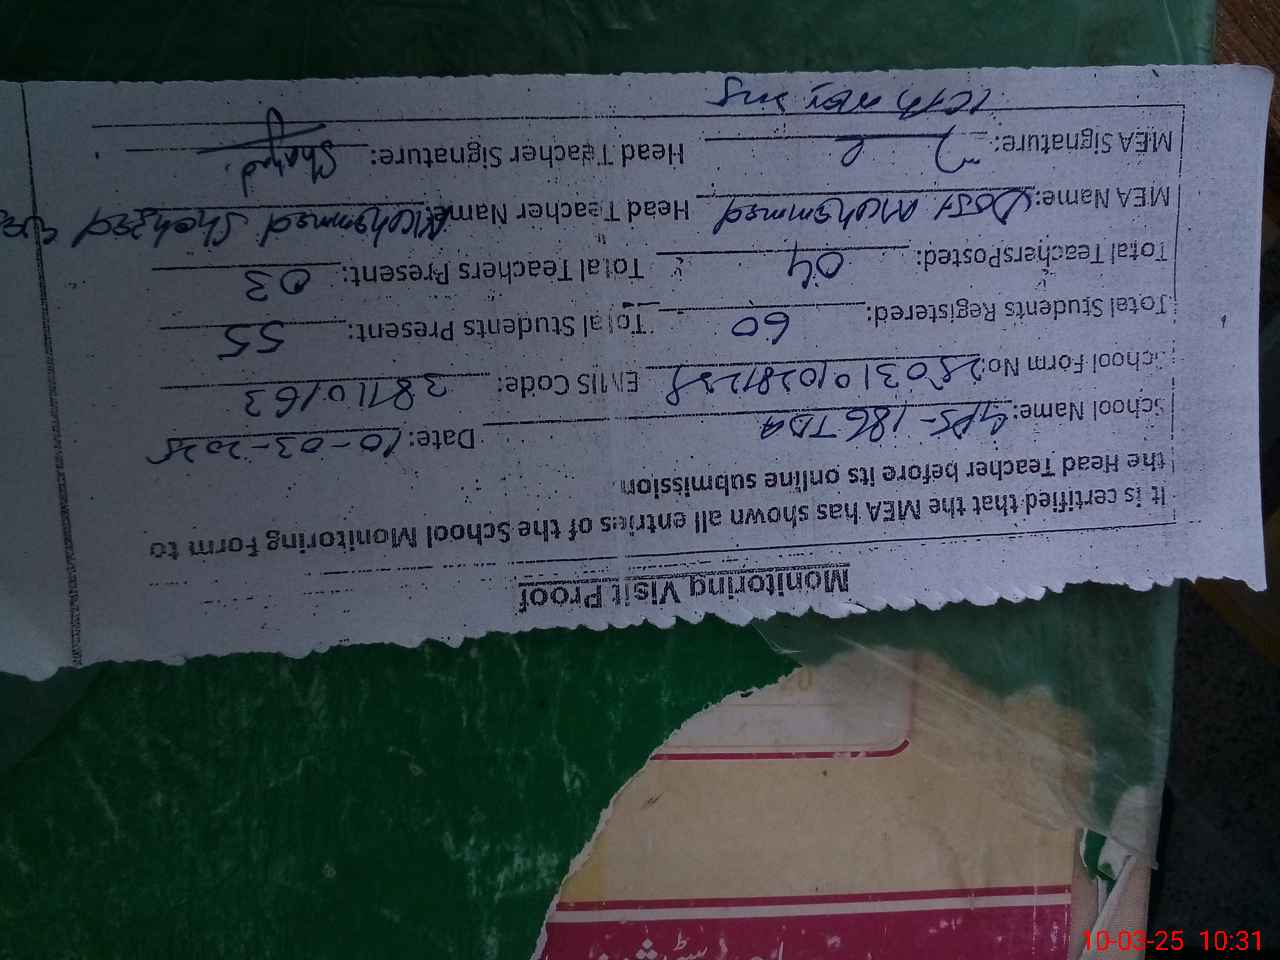 Monitoring Visit Proof
It is certified that the MEA has shown all entries of the School Monitoring Form to
the Head Teacher before its online submission.
School Name: GPS-186 TDA Date: 10-03-2025
School Form No: EMIS Code: 38110163
Total Students Registered: 60 Total Students Present: 55
Total TeachersPosted: 04 Total Teachers Present: 03
MEA Name: Dost Mohammed Head Teacher Name: Mohammed Shahzad
MEA Signature: Head Teacher Signature: Shahzad
10-03-25 10:31